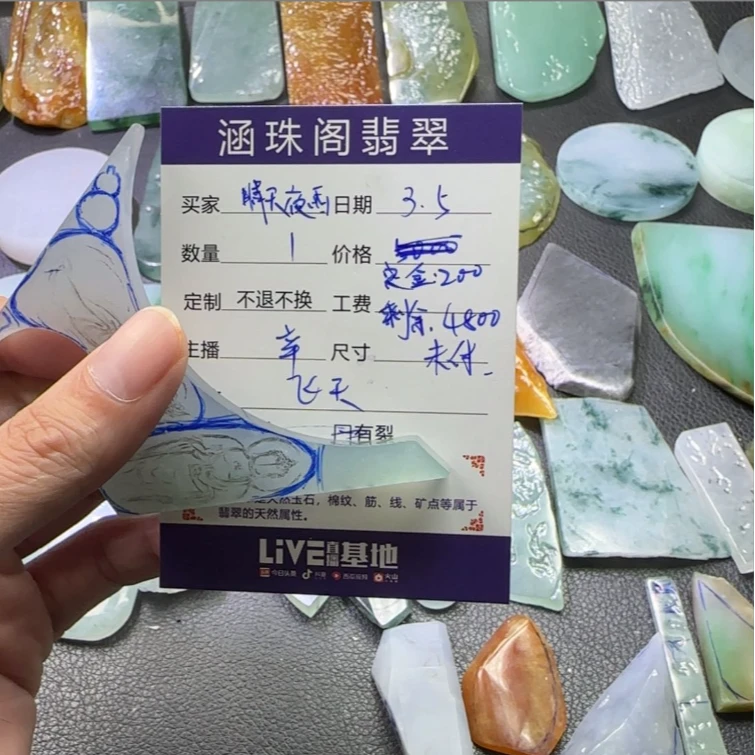 涵珠阁翡翠
买家 晴天夜雨 日期 3.5
数量 1 价格
定金:200
定制 不退不换 工费
剩余.4800
主播 辛 尺寸 未付.
飞天
有裂
玉石，棉纹、筋、线、矿点等属于
翡翠的天然属性。
LiVE直播基地
今日头条 抖音 西瓜视频 火山